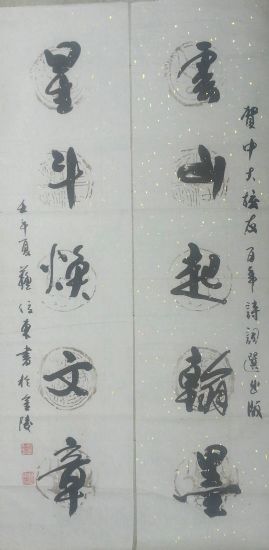 賀中大校友百年詩詞選出版
雲山起翰墨
星斗煥文章
壬午夏蘇信東書於金陵